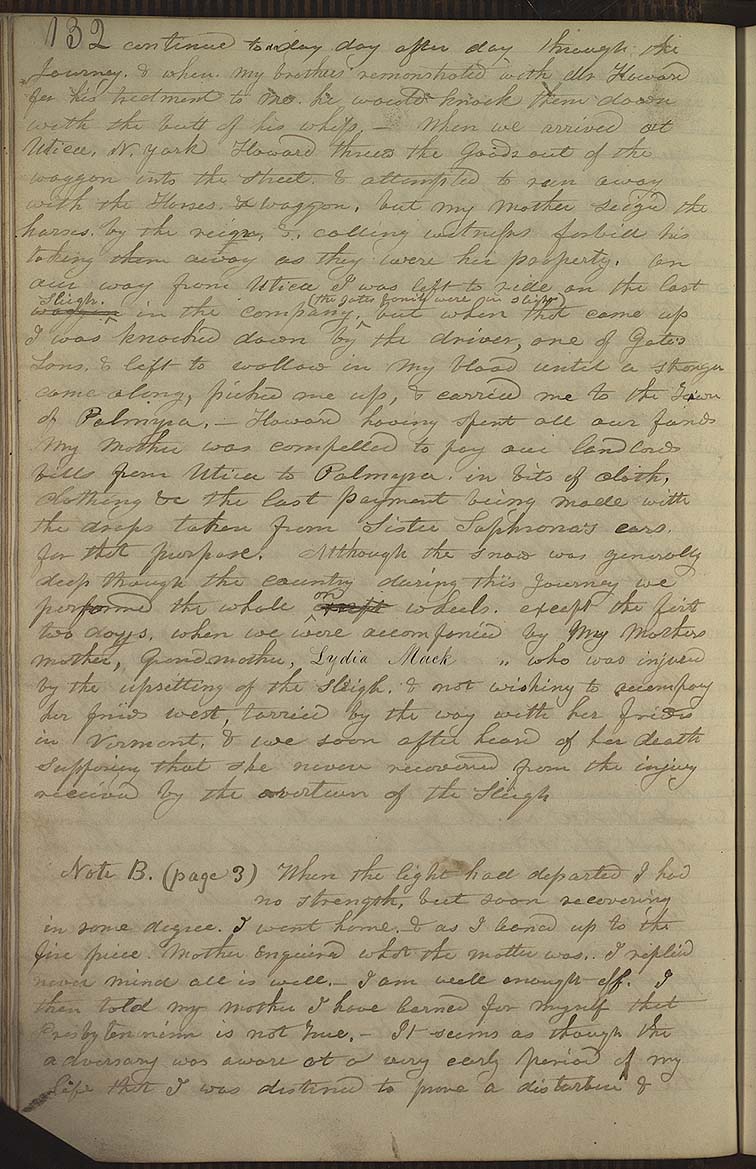 132 continued to day day after day through the
Journey. & when my brothers remonstrated with Mr Howard
for his treatment to me. he would knock them down
with the butt of his whip,— When we arrived at
Utica, N. York Howard threw the goods out of the
waggon into the street. & attempted to run away
with the Horses & waggon, but my mother seized the
horses by the reigns, &, calling witnesses forbid his
taking them away as they were her property. on
our way from Utica I was left to ride on the last
Sleigh.
waggon in the company, (the Gates family were in sleighs) but when that came up
I was knocked down by the driver, one of Gate's
Sons, & left to wallow in my blood until a stranger
came along, picked me up, & carried me to the Town
of Palmyra,— Howard having spent all our funds
My Mother was compelled to pay our landlords
bills from Utica to Palmyra in bits of cloth,
clothing &c the last payment being made with
the drops taken from Sister Sophronia's ears.
for that purpose. Although the snow was generally
deep through the country during this Journey we
performed the whole on wheels. except the first
two days. when we were accompanied by My Mothers
mother, Grandmother, Lydia Mack „ who was injured
by the upsetting of the Sleigh. & not wishing to accompany
her friends west, tarried by the way with her friends
in Vermont, & we soon after heard of her death
supposing that she never recovered from the injury
received by the overturn of the Sleigh
Note B. (page 3) When the light had departed I had
no strength, but soon recovering
in some degree. I went home. & as I leaned up to the
fire piece. Mother Enquired what the matter was. I replied
never mind all is well.— I am well enough off. I
then told my mother I have learned for myself that
Presbyterianism is not True.— It seems as though the
adversary was aware at a very early period of my
life that I was destined to prove a disturber &